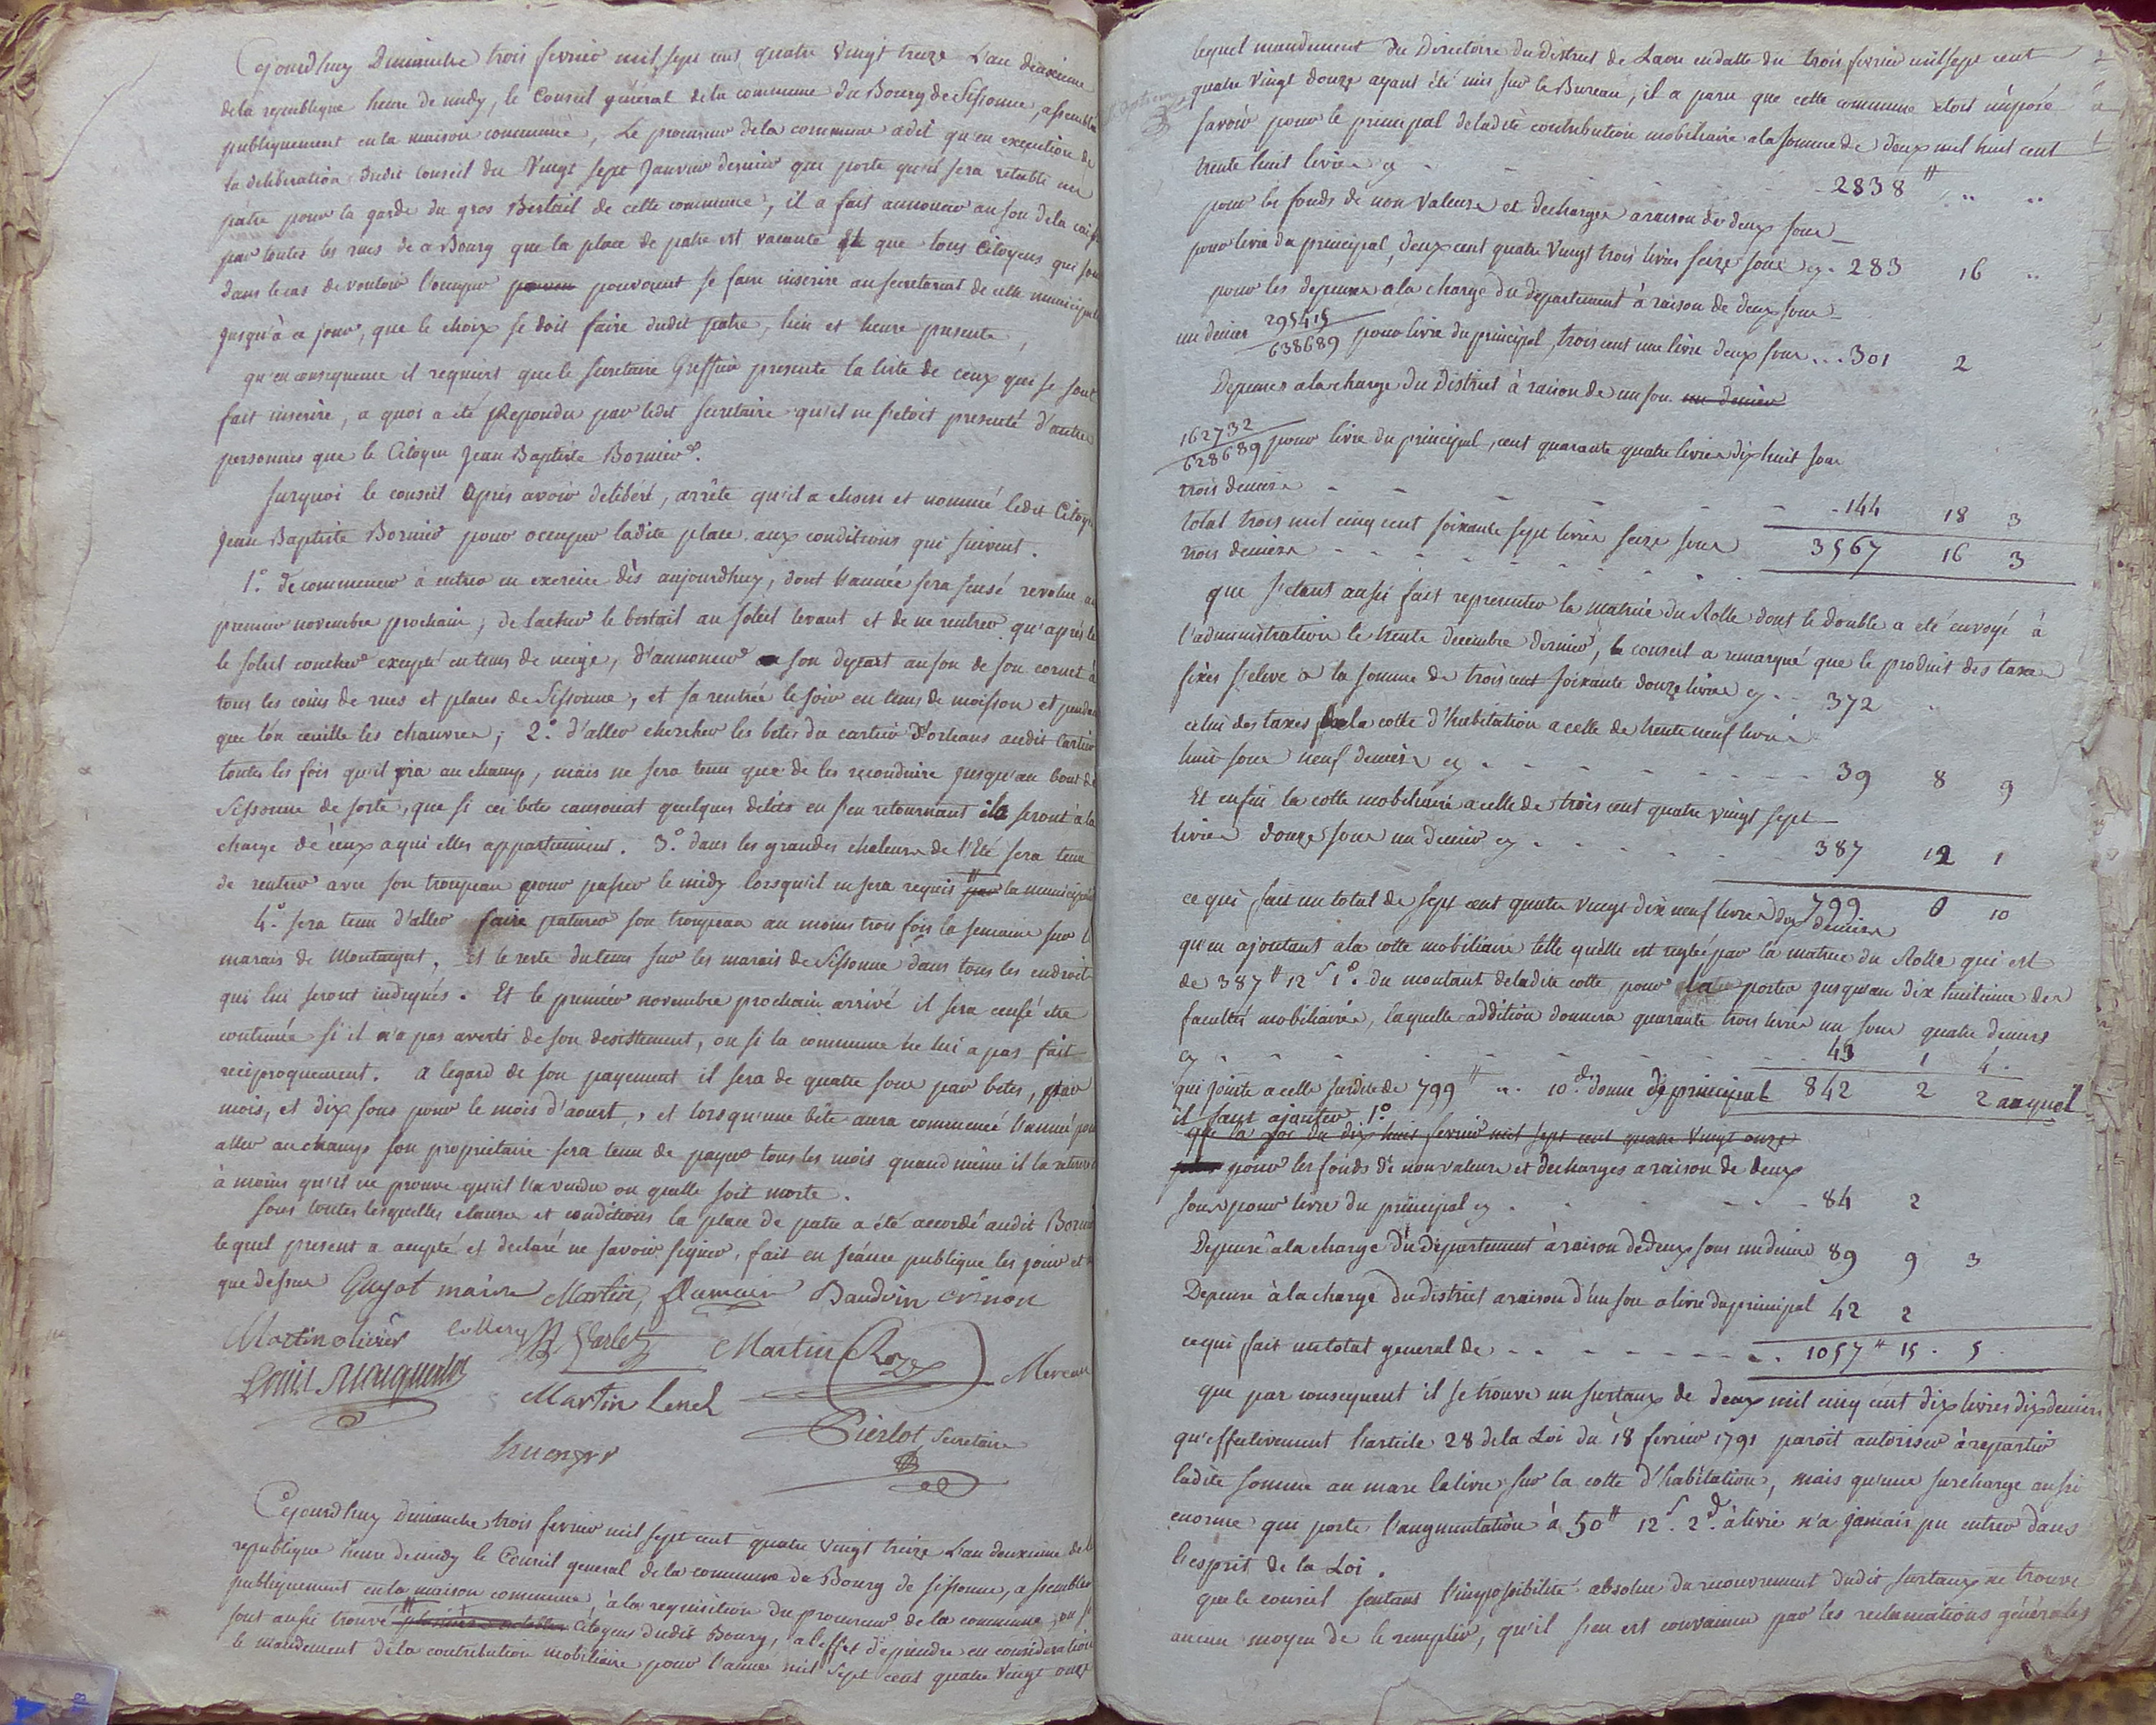 Cejourdhuy Dimanche trois fevrier mil sept cent quatre vingt treize L'an deuxieme
de la republique heure de midy, le Conseil général de la commune du Bourg de Sissonne, assemblé
publiquement en la maison commune, Le procureur de la commune a dit qu'en execution de
la deliberation dudit Conseil du Vingt sept Janvier dernier qui porte qu'il sera retabli un
patre pour la garde du gros Bestail de cette commune, il a fait annoncer au son de la caisse
par toutes les rues de ce Bourg que la place de patre est vacante et que tous Citoyens qui sont
dans le cas de vouloir l'occuper pouvoient se faire inscrire au secretariat de cette municipalité
Jusqu'à ce jour, que le choix se doit faire dudit patre, lieu et heure presente,
qu'en consequence il requiert que le secretaire Greffier presente la liste de ceux qui se sont
fait inscrire, a quoi a été Repondu par ledit secretaire qu'il ne s'etoit presenté d'autre
personnes que le Citoyen Jean Baptiste Bornier.
surquoi le conseil après avoir deliberé, arrête qu'il a choisi et nommé ledit Citoyen
Jean Baptiste Bornier pour occuper ladite place aux conditions qui suivent.
1.° de commencer à entrer en exercice dès aujourdhuy, dont l'année sera sensé revolue au
premier novembre prochain, de lacher le bestail au soleil levant et de ne rentrer qu'après le
le soleil coucher excepté en tems de neige, d'annoncer son depart au son de son cornet à
tous les coins de rues et places de Sissonne, et sa rentrée le soir en tems de moisson et pendant
que l'on ceuille les chanvres; 2.° d'aller chercher les betes du cartier d'orleans audit cartier
toutes les fois qu'il ira au champ, mais ne sera tenu que de les reconduire jusqu'au bout de
Sissonne de sorte, que si ces bete causoient quelques délits en s'en retournant ils seront à la
charge de ceux a qui elles appartiennent. 3.° dans les grandes chaleurs de l'Eté sera tenu
de rentrer avec son troupeau pour passer le midy lorsqu'il en sera requis par la municipalité
4.° sera tenu d'aller faire paturer son troupeau au moins trois fois la semaine sur le
marais de Montaigut, et le reste du tems sur les marais de Sissonne dans tous les endroit
qui lui seront indiqués. Et le premier novembre prochain arrivé il sera censé etre
continuée si il n'a pas averti de son desistement, ou si la commune ne lui a pas fait
reciproquement. a legard de son payement il sera de quatre sous par betes, par
mois, et dix sous pour le mois d'aoust, et lorsqu'une bête aura commencé l'année pour
aller au champs son proprietaire sera tenu de payer tous les mois quand même il la retirera
à moins qu'il ne prouve qu'il l'a vendu ou quelle soit morte.
Sous toutes lesquelles clauses et conditions la place de patre a été accordé audit Bornier
lequel present a accepté et declaré ne savoir signer, fait en séance publique les jour et an
que dessus Guyot maire Martin, Baudoin
Martin olivier Martin Roze
Martin Lenel
Pierlot Secretaire
Cejourdhuy dimanche trois fevrier mil sept cent quatre vingt treize L'an deuxieme de la
republique heure de midy le Conseil general de la commune du Bourg de sissonne, assemblée
publiquement en la maison commune, à la requisition du procureur de la commune, ou se
sont aussi trouvé Citoyens dudit Bourg, a l'effet de prendre en consideration
le mandement de la contribution mobiliaire pour l'année mil sept cent quatre vingt onze
lequel mandement du Directoire du District de Laon en datte du trois fevrier mil sept cent
quatre vingt douze ayant été mis sur le Bureau, il a paru que cette commune etoit imposé
savoir pour le principal de ladite contribution mobiliaire a la somme de deux mil huit cent
trente huit livres cy - 2838 ₶ " "
pour les fonds de non valeurs et decharges a raison de deux sous
pour livre du principal, deux cent quatre vingt trois livres seize sous cy. 283 16 "
pour les depenses a la charge du departement à raison de deux sous
un denier 295415/638689 pour livre du principal, trois cent une livre deux sous ... 301 2
Depenses a la charge du District à raison de un sou un denier
162732/628689 pour livre du principal, cent quarante quatre livres dix huit sous
trois deniers - - - - 144 18 3
total trois mil cinq cent soixante sept livres seize sous
trois deniers - - - - 3567 16 3
que s'etant aussi fait representer la matrice du Rolle dont le double a été envoyé à
l'administration le trente decembre dernier, le conseil a remarqué que le produit des taxes
fixés s'eleve a la somme de trois cent soixante douze livres cy - - 372
celui des taxes de la cotte d'habitation a celle de trente neuf livres
huit sous neuf deniers cy - - - - 39 8 9
Et enfin la cotte mobiliaire a celle de trois cent quatre vingt sept
livres douze sous un denier cy - - - 387 12 1
ce qui fait un total de sept cent quatre vingt dix neuf livres dix deniers 799 0 10
qu'en ajoutant a la cotte mobiliaire telle quelle est reglé par la matrice du Rolle qui est
de 387₶ 12ˢ 1ᵈ. du montant de ladite cotte pour la porter jusqu'au dix huitieme des
facultés mobiliaires, laquelle addition donnera quarante trois livres un sous quatre deniers
cy - - - - 43 1 4.
qui jointe a celle susdite de 799₶ " 10.ᵈ donne de principal 842 2 2 auquel
il faut ajouter 1.°
que la loi du dix huit fevrier mil sept cent quatre vingt onze
pour les fonds de non valeurs et decharges a raison de deux
sous pour livre du principal cy - - - 84 2
Depense à la charge du Departement à raison de deux sous un denier 89 9 3
Depense à la charge du district a raison d'un sou a livre du principal 42 2
ce qui fait un total general de - - - - 1057₶ 15. 5
que par consequent il se trouve un surtaux de deux mil cinq cent dix livres dix deniers
qu'effectivement l'article 28 de la Loi du 18 fevrier 1791 paroit autoriser à repartir
ladite somme au marc la livre sur la cotte d'habitation, mais qu'une surcharge aussi
enorme qui porte l'augmentation à 50₶ 12ˢ. 2ᵈ. à livre n'a jamais pu entrer dans
l'esprit de la Loi.
que le conseil sentant l'impossibilité absolue du recouvrement dudit surtaux ne trouve
aucun moyen de le remplir, qu'il s'en est convaincu par les reclamations générales